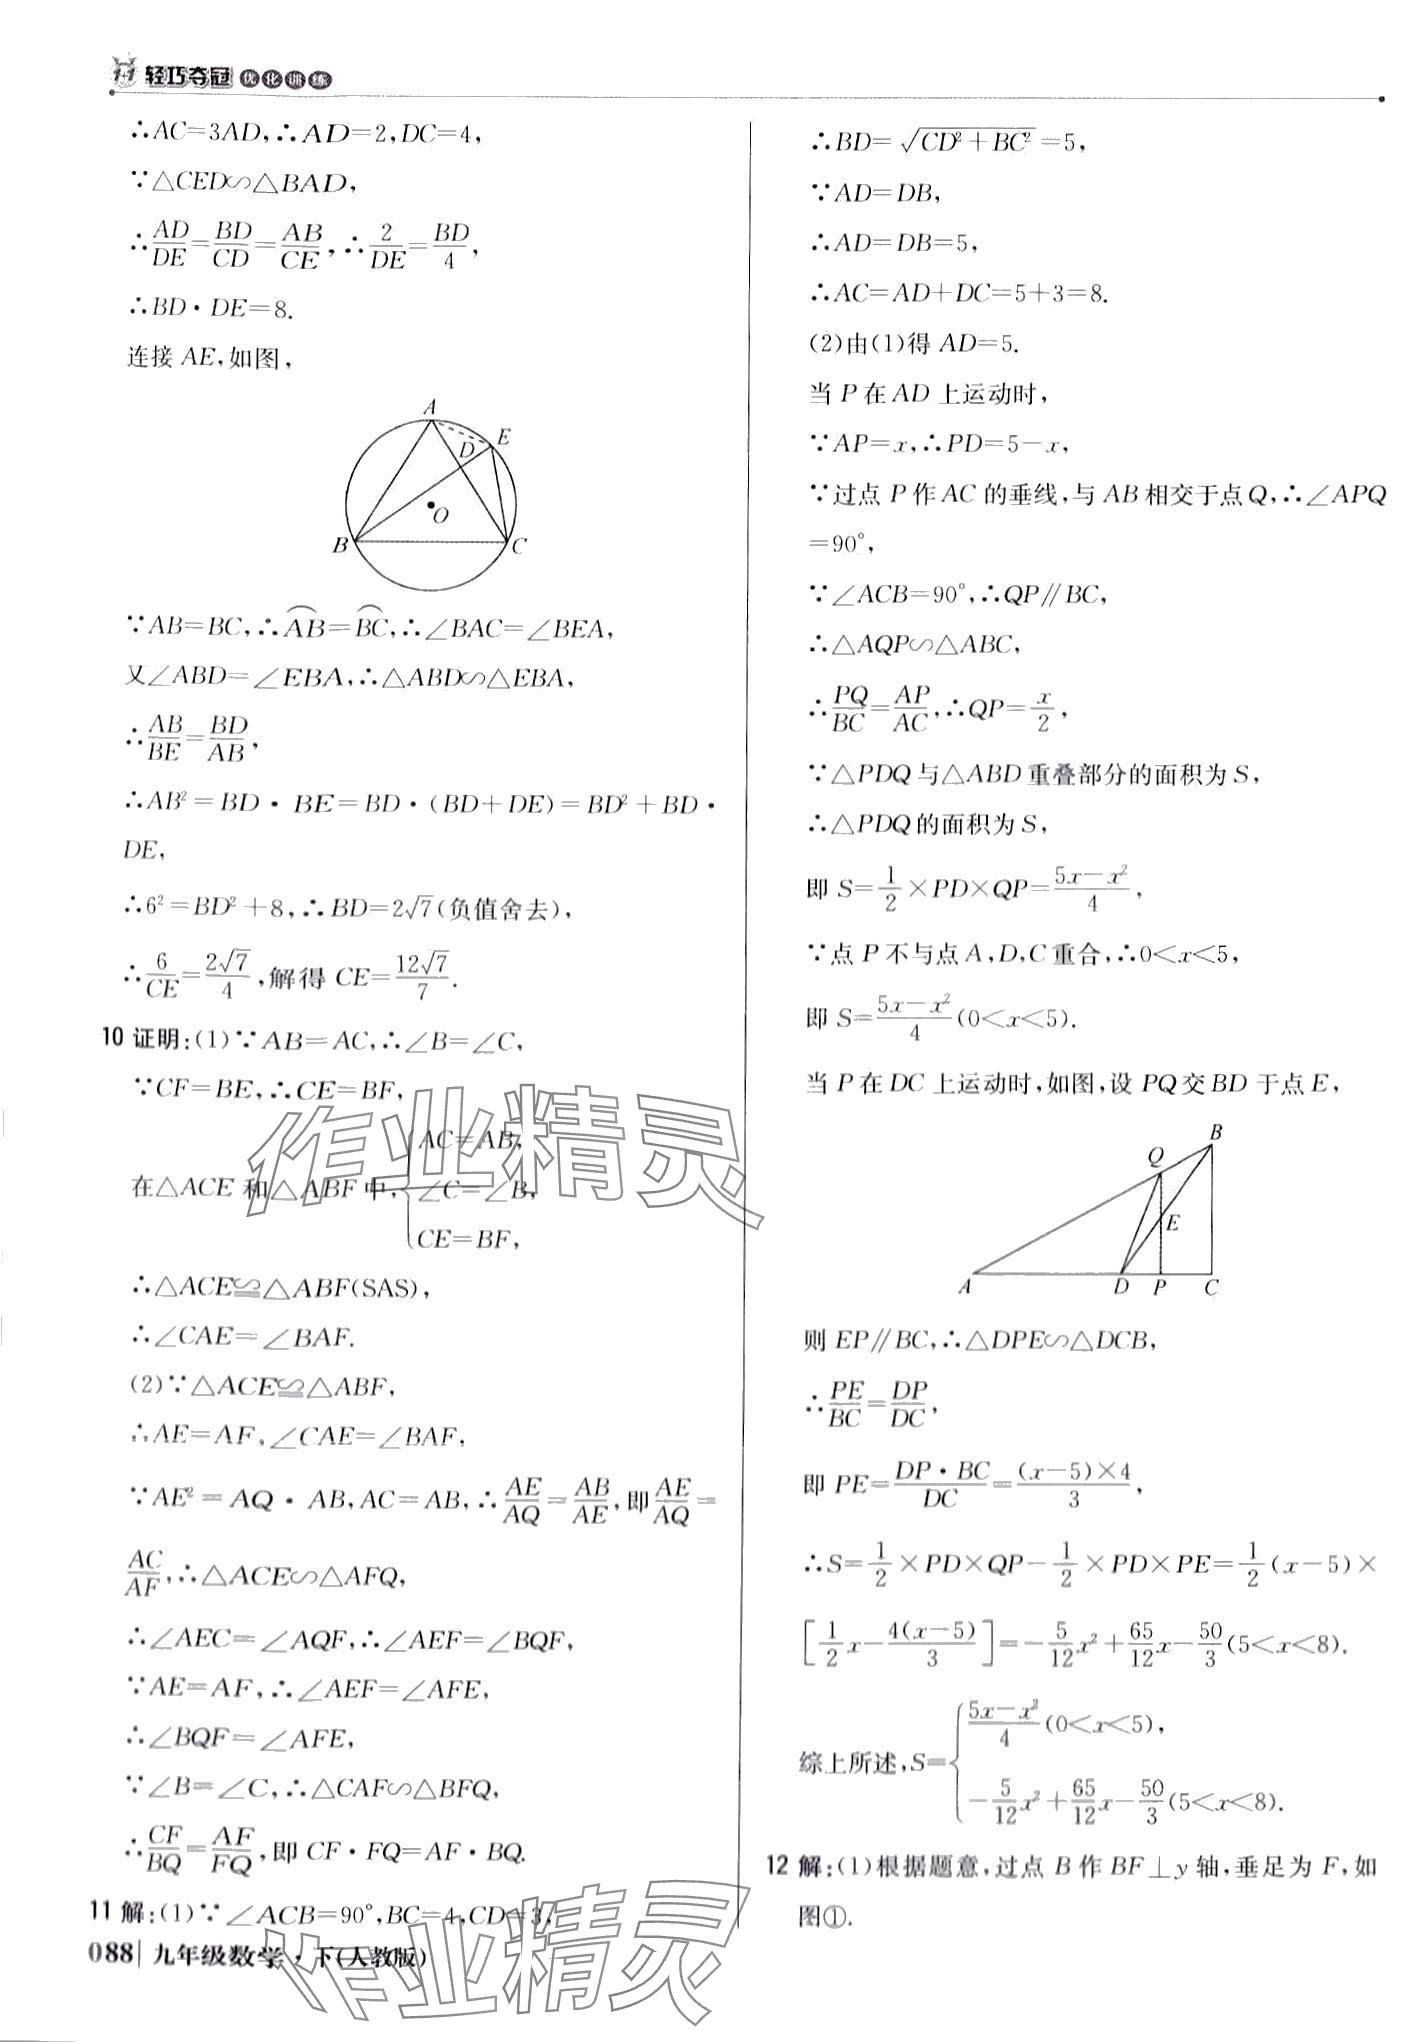 轻巧夺冠 优化训练
∴AC=3AD,∴AD=2,DC=4,
∵△CED∽△BAD,
∴AD/DE=BD/CD=AB/CE,∴2/DE=BD/4,
∴BD·DE=8.
连接 AE,如图,
A
E
D
O
B
C
∵AB=BC,∴⌒AB=⌒BC,∴∠BAC=∠BEA,
又∠ABD=∠EBA,∴△ABD∽△EBA,
∴AB/BE=BD/AB,
∴AB²=BD·BE=BD·(BD+DE)=BD²+BD·
DE,
∴6²=BD²+8,∴BD=2√7(负值舍去),
∴6/CE=2√7/4,解得 CE=12√7/7.
10 证明:(1)∵AB=AC,∴∠B=∠C,
∵CF=BE,∴CE=BF,
在△ACE 和△ABF 中,{AC=AB,
∠C=∠B,
CE=BF,
∴△ACE≌△ABF(SAS),
∴∠CAE=∠BAF.
(2)∵△ACE≌△ABF,
∴AE=AF,∠CAE=∠BAF,
∵AE²=AQ·AB,AC=AB,∴AE/AQ=AB/AE,即AE/AQ=
AC/AF,∴△ACE∽△AFQ,
∴∠AEC=∠AQF,∴∠AEF=∠BQF,
∵AE=AF,∴∠AEF=∠AFE,
∴∠BQF=∠AFE,
∵∠B=∠C,∴△CAF∽△BFQ,
∴CF/BQ=AF/FQ,即 CF·FQ=AF·BQ.
11 解:(1)∵∠ACB=90°,BC=4,CD=3,
088 九年级数学·下(人教版)
∴BD=√(CD²+BC²)=5,
∵AD=DB,
∴AD=DB=5,
∴AC=AD+DC=5+3=8.
(2)由(1)得 AD=5.
当 P 在 AD 上运动时,
∵AP=x,∴PD=5-x,
∵过点 P 作 AC 的垂线,与 AB 相交于点 Q,∴∠APQ
=90°,
∵∠ACB=90°,∴QP∥BC,
∴△AQP∽△ABC,
∴PQ/BC=AP/AC,∴QP=x/2,
∵△PDQ 与△ABD 重叠部分的面积为 S,
∴△PDQ 的面积为 S,
即 S=1/2×PD×QP=(5x-x²)/4,
∵点 P 不与点 A,D,C 重合,∴0<x<5,
即 S=(5x-x²)/4(0<x<5).
当 P 在 DC 上运动时,如图,设 PQ 交 BD 于点 E,
B
Q
E
A
D
P
C
则 EP∥BC,∴△DPE∽△DCB,
∴PE/BC=DP/DC,
即 PE=DP·BC/DC=(x-5)×4/3,
∴S=1/2×PD×QP-1/2×PD×PE=1/2(x-5)×
[1/2x-4(x-5)/3]=-5/12x²+65/12x-50/3(5<x<8).
综上所述,S={(5x-x²)/4(0<x<5),
-5/12x²+65/12x-50/3(5<x<8).
12 解:(1)根据题意,过点 B 作 BF⊥y 轴,垂足为 F,如
图①.
作业精灵
作业精灵